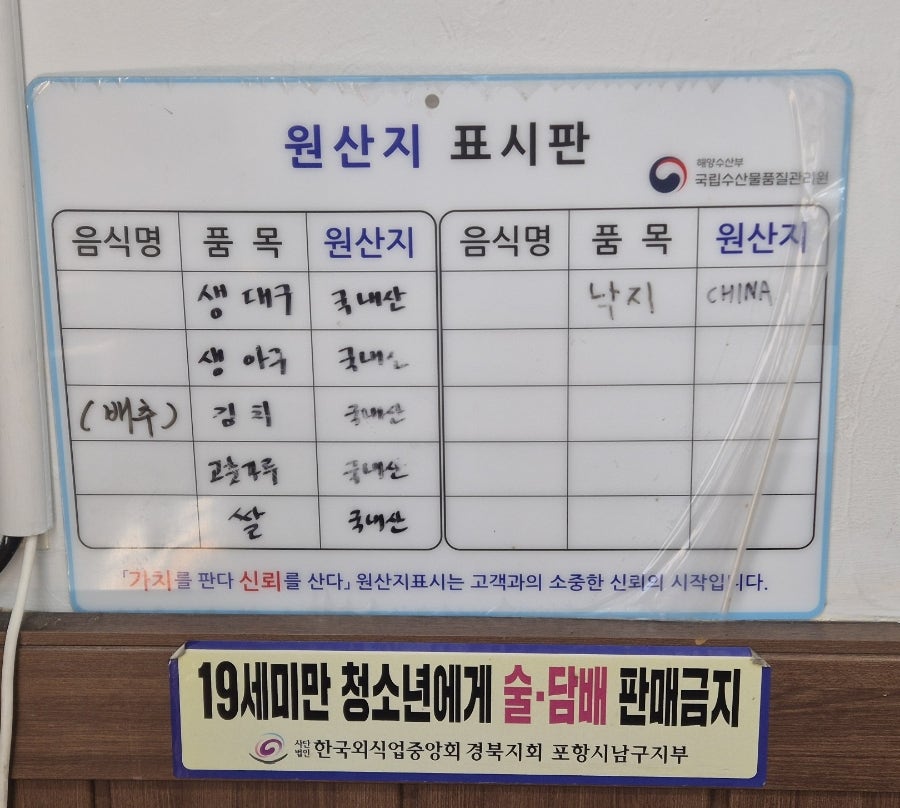 원산지 표시판
해양수산부
국립수산물품질관리원
음식명 품 목 원산지 음식명 품 목 원산지
생 대구 국내산 낙지 CHINA
생 아구 국내산
(배추) 김치 국내산
고춧가루 국내산
쌀 국내산
「가치를 판다 신뢰를 산다」 원산지표시는 고객과의 소중한 신뢰의 시작입니다.
19세미만 청소년에게 술·담배 판매금지
사단법인 한국외식업중앙회 경북지회 포항시남구지부